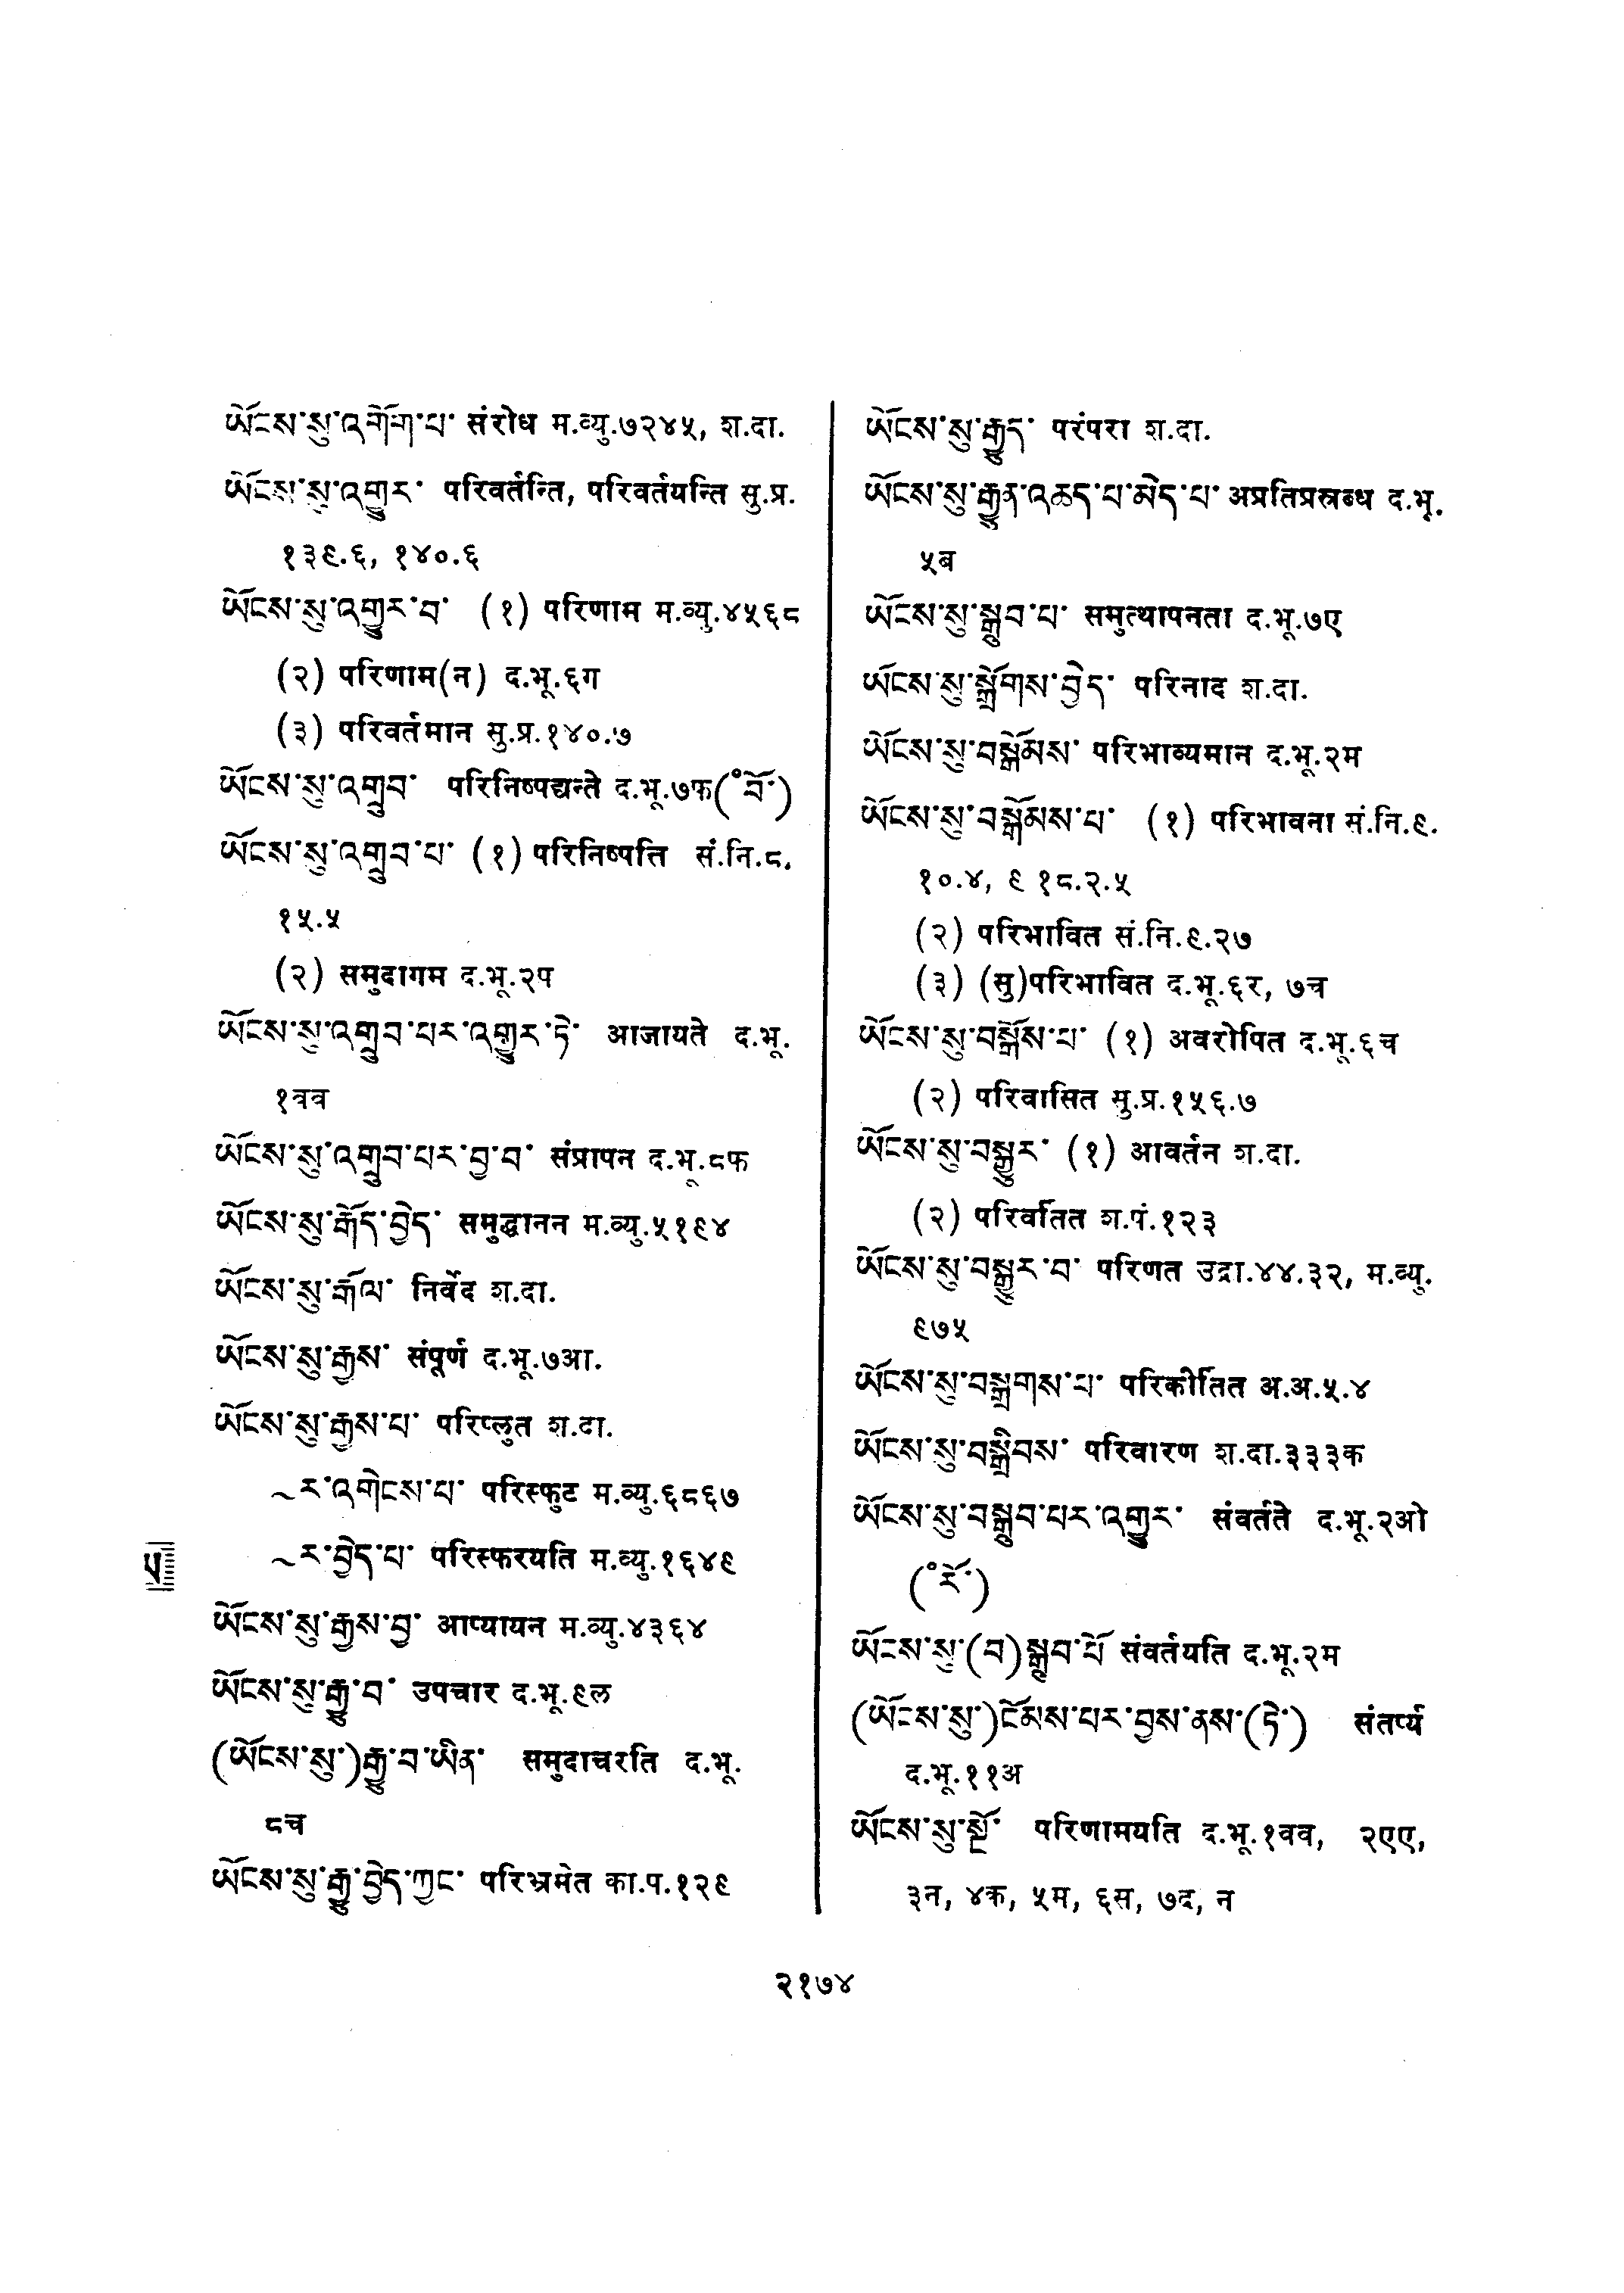 ཡོངས་སུ་འགོག་པ་ संरोध म.व्यु.७२४५, श.दा.
ཡོངས་སུ་འགྱུར་ परिवर्तन्ति, परिवर्तयन्ति सु.प्र.
१३९.६, १४०.६
ཡོངས་སུ་འགྱུར་བ་ (१) परिणाम म.व्यु.४५६८
(२) परिणाम(न) द.भू.६ग
(३) परिवर्तमान सु.प्र.१४०.७
ཡོངས་སུ་འགྲུབ་ परिनिष्पद्यन्ते द.भू.७फ(༠བོ་)
ཡོངས་སུ་འགྲུབ་པ་ (१) परिनिष्पत्ति सं.नि.८.
१५.५
(२) समुदागम द.भू.२प
ཡོངས་སུ་འགྲུབ་པར་འགྱུར་ཏེ་ आजायते द.भू.
१वव
ཡོངས་སུ་འགྲུབ་པར་བྱ་བ་ संप्रापन द.भू.८फ
ཡོངས་སུ་རྒོད་བྱེད་ समुद्धानन म.व्यु.५१९४
ཡོངས་སུ་རྒོལ་ निर्वेद श.दा.
ཡོངས་སུ་རྒྱས་ संपूर्ण द.भू.७आ.
ཡོངས་སུ་རྒྱས་པ་ परिप्लुत श.दा.
~ར་འགེངས་པ་ परिस्फुट म.व्यु.६८६७
~ར་བྱེད་པ་ परिस्फरयति म.व्यु.१६४९
ཡོངས་སུ་རྒྱས་བྱ་ आप्यायन म.व्यु.४३६४
ཡོངས་སུ་རྒྱུ་བ་ उपचार द.भू.९ल
(ཡོངས་སུ་)རྒྱུ་བ་ཡིན་ समुदाचरति द.भू.
८च
ཡོངས་སུ་རྒྱུ་བྱེད་ཀྱང་ परिभ्रमेत का.प.१२९
ཡོངས་སུ་རྒྱུད་ परंपरा श.दा.
ཡོངས་སུ་རྒྱུན་འཆད་པ་མེད་པ་ अप्रतिप्रस्रब्ध द.भू.
५ब
ཡོངས་སུ་སྒྲུབ་པ་ समुत्थापनता द.भू.७ए
ཡོངས་སུ་སྒྲོགས་བྱེད་ परिनाद श.दा.
ཡོངས་སུ་བསྒོམས་ परिभाव्यमान द.भू.२म
ཡོངས་སུ་བསྒོམས་པ་ (१) परिभावना सं.नि.९.
१०.४, ९ १८.२.५
(२) परिभावित सं.नि.९.२७
(३) (सु)परिभावित द.भू.६र, ७त्र
ཡོངས་སུ་བསྒོས་པ་ (१) अवरोपित द.भू.६च
(२) परिवासित सु.प्र.१५६.७
ཡོངས་སུ་བསྒྱུར་ (१) आवर्तन श.दा.
(२) परिवर्तित श.पं.१२३
ཡོངས་སུ་བསྒྱུར་བ་ परिणत उद्रा.४४.३२, म.व्यु.
९७५
ཡོངས་སུ་བསྒྲགས་པ་ परिकीर्तित अ.अ.५.४
ཡོངས་སུ་བསྒྲིབས་ परिवारण श.दा.३३३क
ཡོངས་སུ་བསྒྲུབ་པར་འགྱུར་ संवर्तते द.भू.२ओ
(༠རོ་)
ཡོངས་སུ་(བ)སྒྲུབ་པོ संवर्तयति द.भू.२म
(ཡོངས་སུ་)ངོམས་པར་བྱས་ནས་(ཏེ་) संतर्प्य
द.भू.११अ
ཡོངས་སུ་སྔོ་ परिणामयति द.भू.१वव, २एए,
३न, ४क, ५म, ६स, ७द, न
२१७४